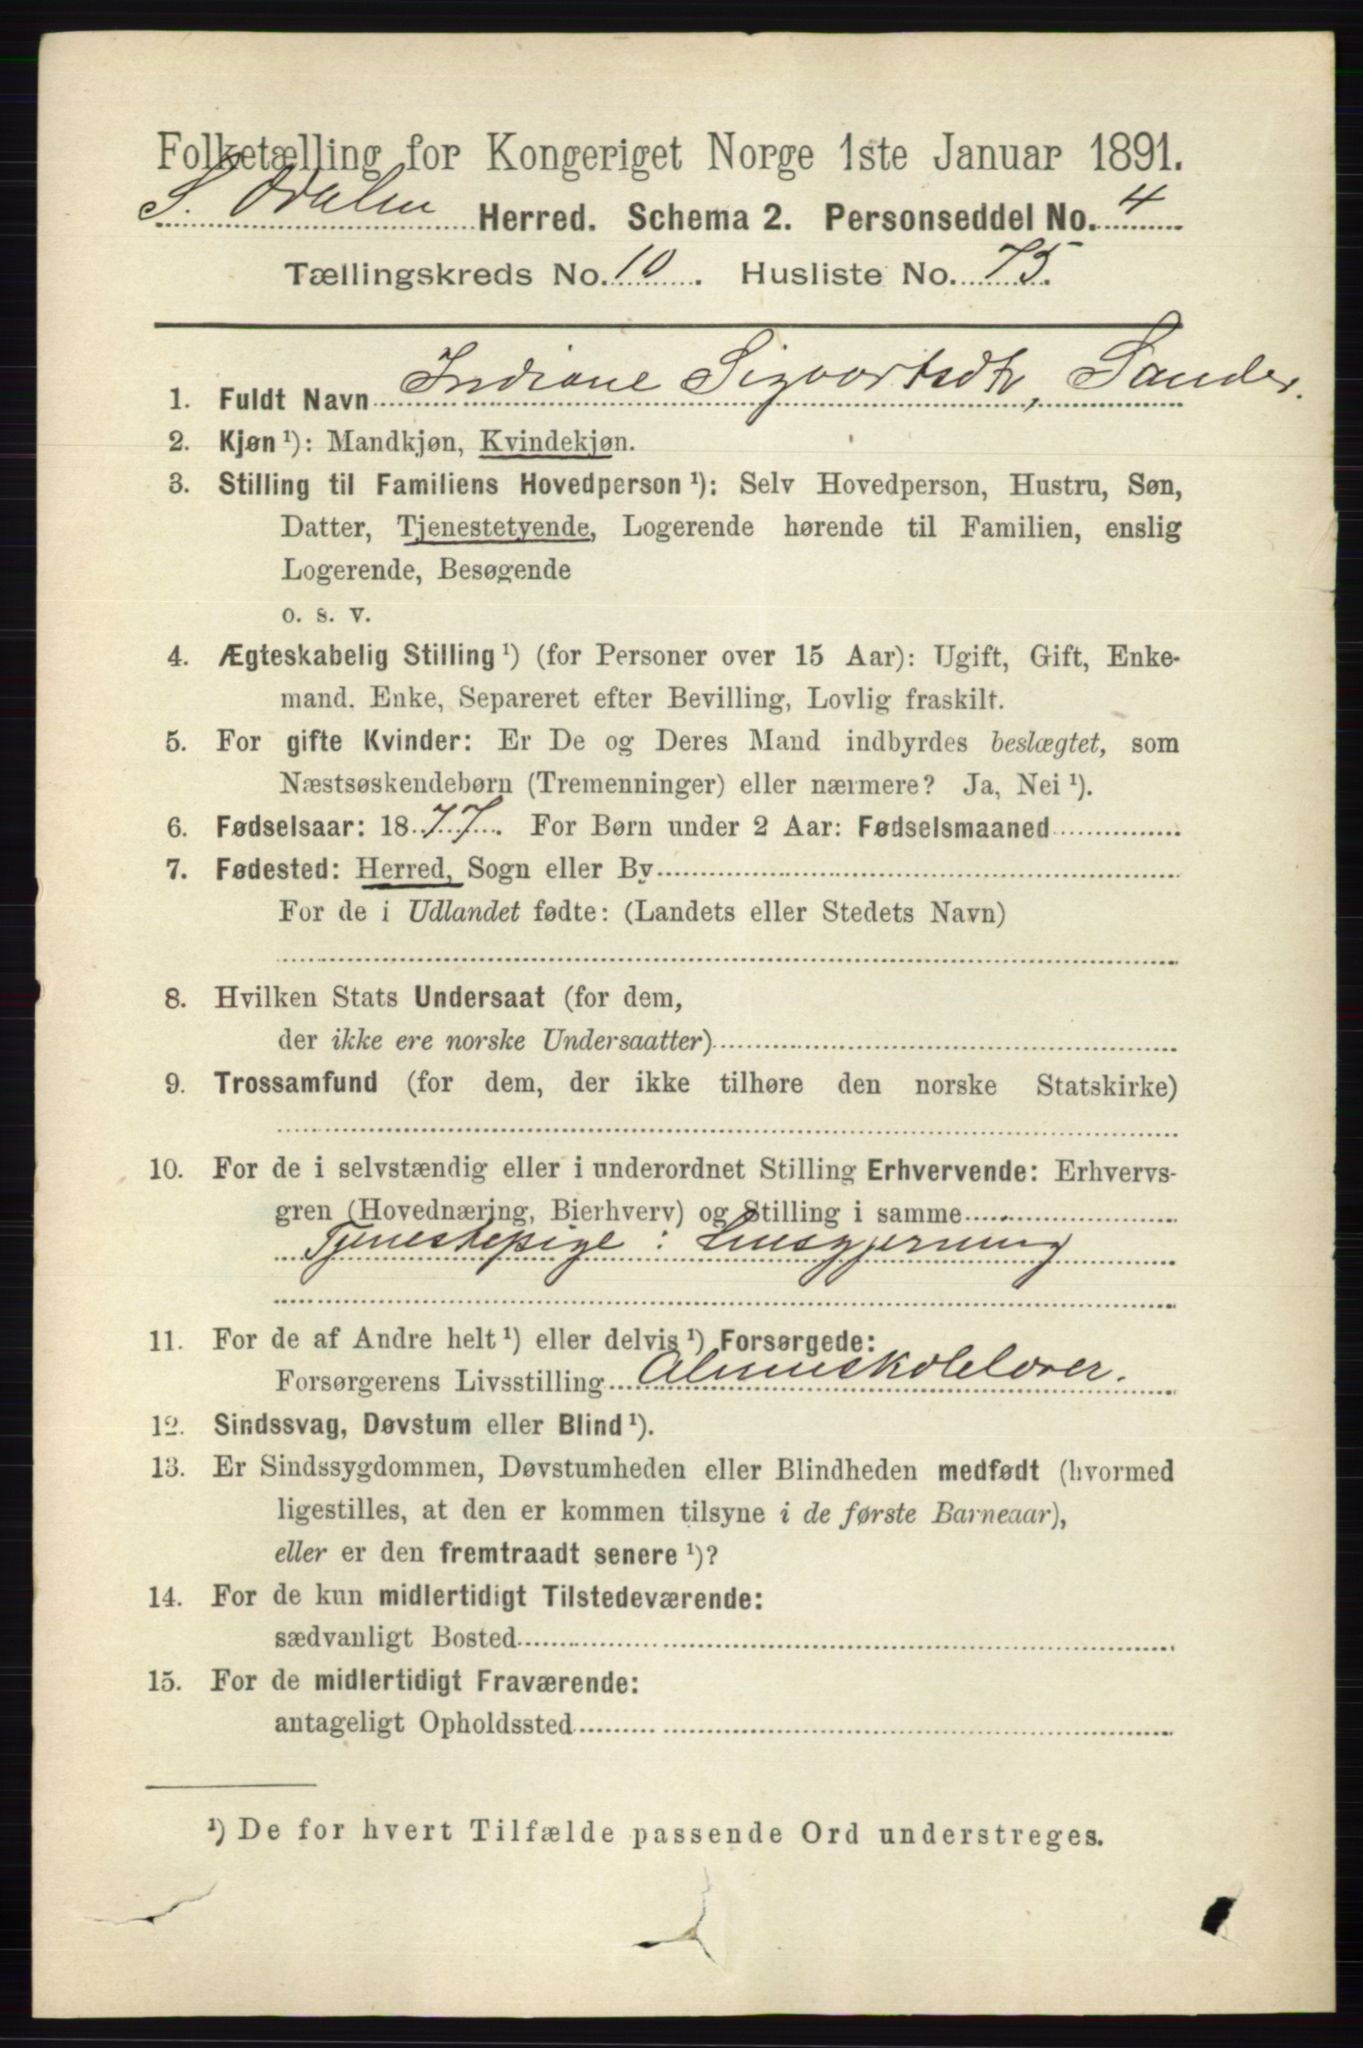 Folketælling for Kongeriget Norge 1ste Januar 1891.
S. Odalen Herred. Schema 2. Personseddel No. 4
Tællingskreds No. 10. Husliste No. 75.
1. Fuldt Navn Indiane Sigvartsdtr, Sander.
2. Kjøn ¹): Mandkjøn, Kvindekjøn.
3. Stilling til Familiens Hovedperson ¹): Selv Hovedperson, Hustru, Søn,
Datter, Tjenestetyende, Logerende hørende til Familien, enslig
Logerende, Besøgende
o. s. v.
4. Ægteskabelig Stilling ¹) (for Personer over 15 Aar): Ugift, Gift, Enke-
mand. Enke, Separeret efter Bevilling, Lovlig fraskilt.
5. For gifte Kvinder: Er De og Deres Mand indbyrdes beslægtet, som
Næstsøskendebørn (Tremenninger) eller nærmere? Ja, Nei ¹).
6. Fødselsaar: 1877. For Børn under 2 Aar: Fødselsmaaned
7. Fødested: Herred, Sogn eller By
For de i Udlandet fødte: (Landets eller Stedets Navn)
8. Hvilken Stats Undersaat (for dem,
der ikke ere norske Undersaatter)
9. Trossamfund (for dem, der ikke tilhøre den norske Statskirke)
10. For de i selvstændig eller i underordnet Stilling Erhvervende: Erhvervs-
gren (Hovednæring, Bierhverv) og Stilling i samme
Tjenestepige: husgjerning
11. For de af Andre helt ¹) eller delvis ¹) Forsørgede:
Forsørgerens Livsstilling
12. Sindssvag, Døvstum eller Blind ¹).
13. Er Sindssygdommen, Døvstumheden eller Blindheden medfødt (hvormed
ligestilles, at den er kommen tilsyne i de første Barneaar),
eller er den fremtraadt senere ¹)?
14. For de kun midlertidigt Tilstedeværende:
sædvanligt Bosted
15. For de midlertidigt Fraværende:
antageligt Opholdssted
¹) De for hvert Tilfælde passende Ord understreges.